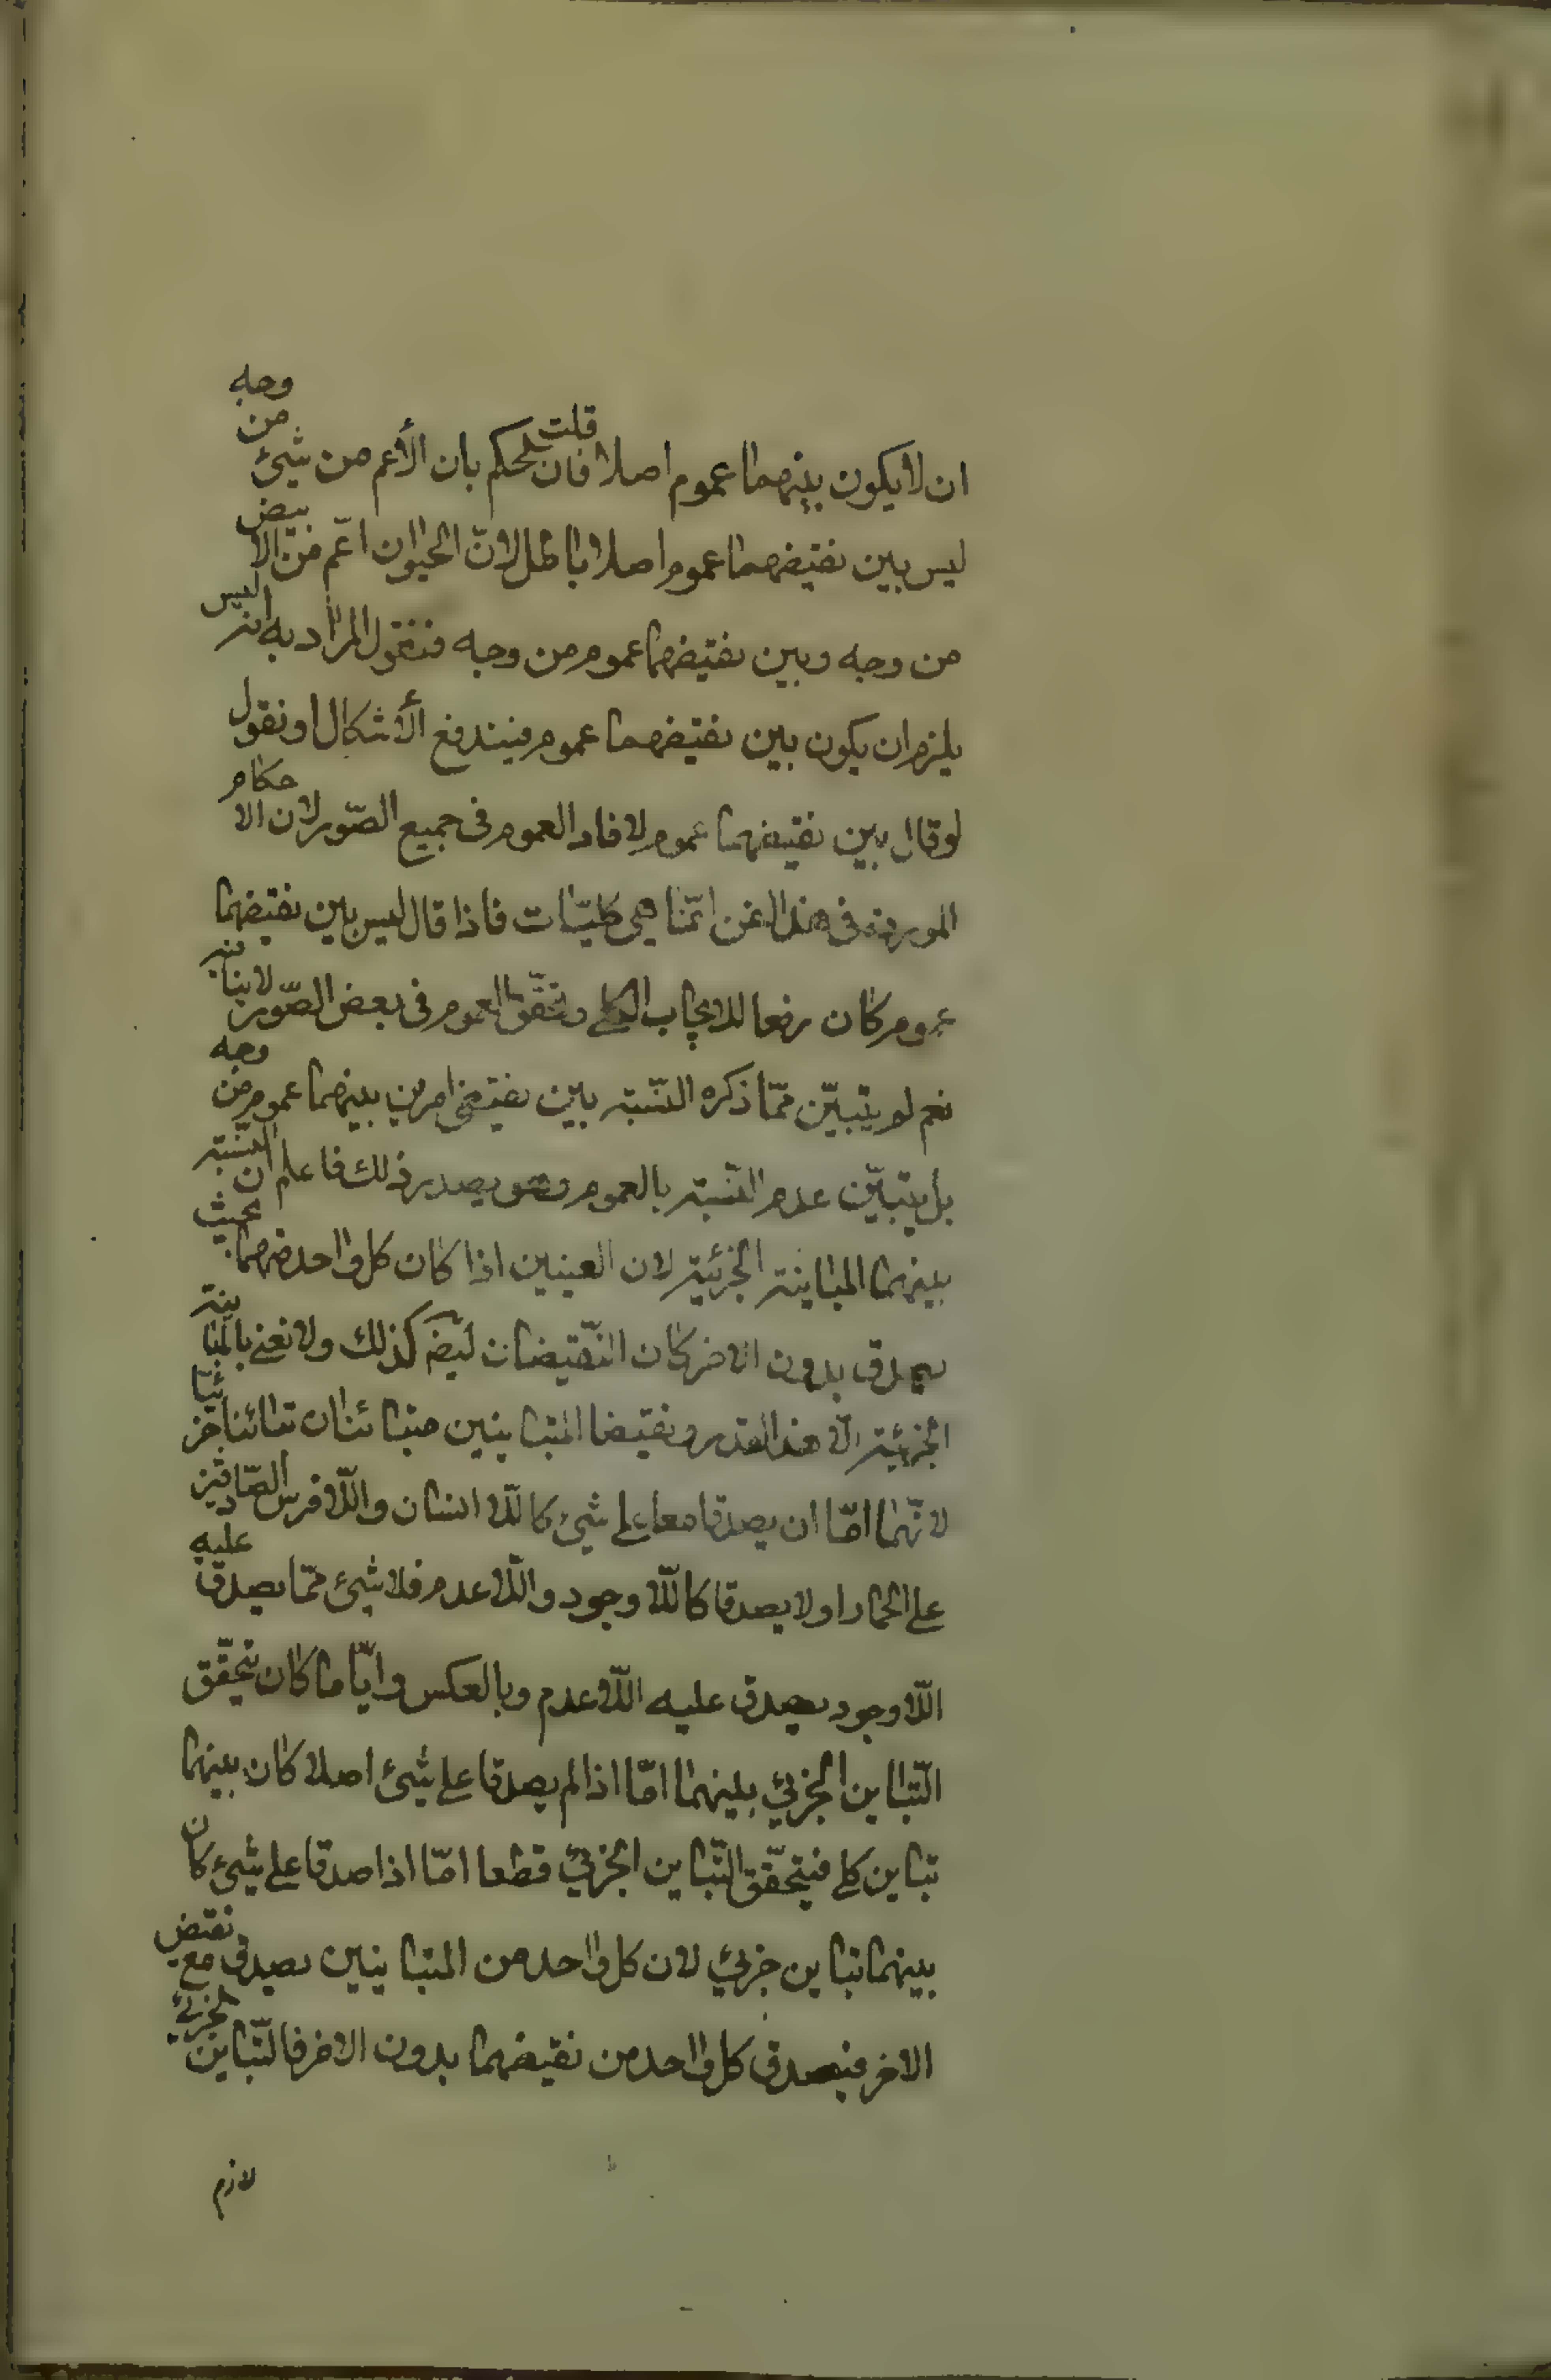 ان لا يكون بينهما عموم اصلا فان قلت الحكم بان الأعم من شيئ من وجه
ليس بين نقيضهما عموم اصلا باطل لانّ الحيوان اعّم من الابيض
من وجه وبين نقيضهما عموم من وجه فنقول المراد به انه ليس
يلزم ان يكون بين نقيضهما عموم فيندفع الأشكال او نقول
لو قال بين نقيضهما عموم لافاد العموم فى جميع الصّور لان الاحكام
الموردة فى هذا الفن انّما هى كليّات فاذا قال ليس بين نقيضهما
عموم كان رفعا للايجاب الكلى وتحقّق العموم فى بعض الصّور لاينافيه
نعم لم يتبيّن ممّا ذكره النّسبة بين نقيضى امرين بينهما عموم من وجه
بل يتبيّن عدم النّسبة بالعموم وهو بصدد ذلك فاعلم ان النّسبة
بينهما المباينة الجزئية لان العينين اذا كان كل واحد منهما بحيث
يصدق بدون الاخر كان النّقيضان ايضم كذلك ولا نعنى بالمباينة
الجزئية الا هذا القدر ونقيضا المتباينين متبائنان تبائنا جزئيا
لانّهما امّا ان يصدقا معا على شيئ كاللّا انسان واللّا فرس الصّادقين
على الحمار او لا يصدقا كاللّا وجود واللّا عدم فلا شيئ ممّا يصدق عليه
اللّا وجود يصدق عليه اللّا عدم وبالعكس وايّا ما كان يتحقّق
التّباين الجزئي بينهما امّا اذا لم يصدقا على شيئ اصلا كان بينهما
تباين كلى فيتحقّق التّباين الجزئي قطعا امّا اذا صدقا على شيئ كان
بينهما تباين جزئي لان كل واحد من المتباينين يصدق مع نقيض
الاخر فيصدق كل واحد من نقيضهما بدون الاخر فالتّباين الجزئي
لازم